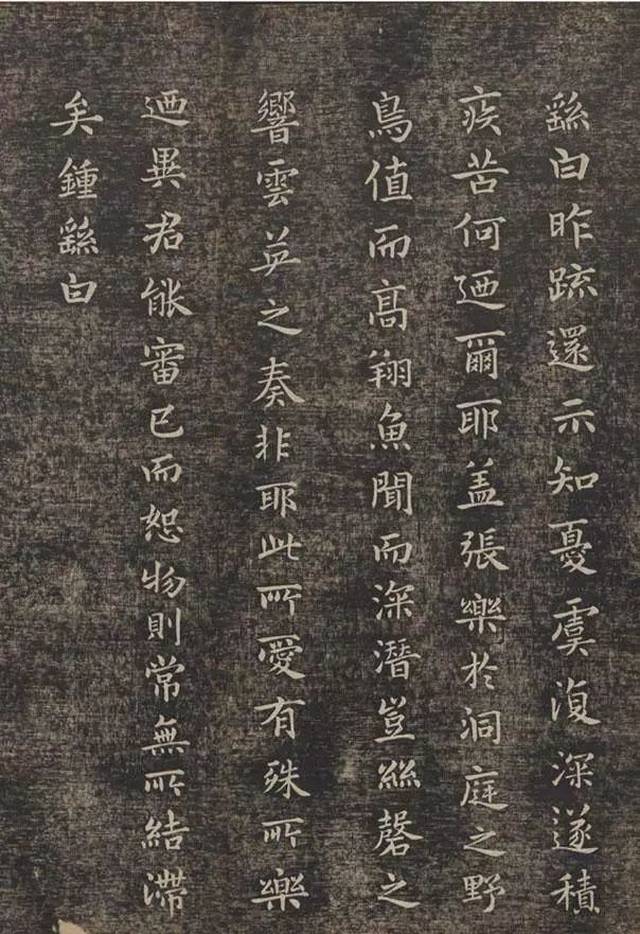 繇白昨疏還示知憂虞復深遂積
疾苦何迺爾耶盖張樂於洞庭之野
鳥值而高翔魚聞而深潛豈絲磬之
響雲英之奏非耶此所愛有殊所樂
迺異君能審己而恕物則常無所結滯
矣鍾繇白